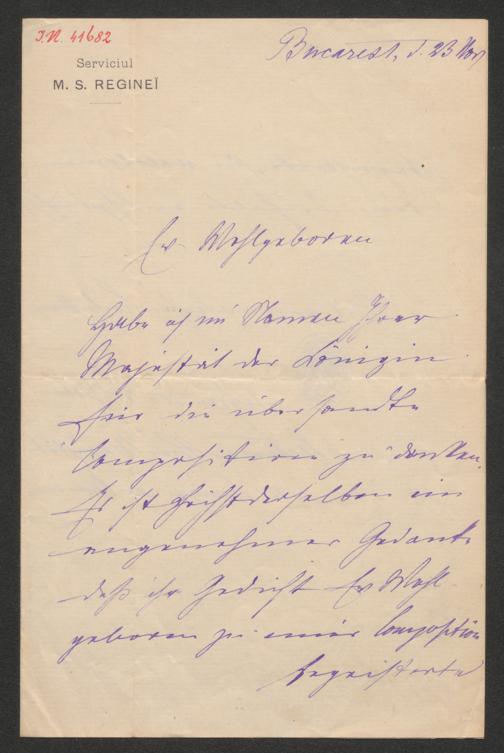 I.N. 41682
Serviciul
M. S. REGINEĬ
Bucarest, d. 23 Nov
Ew Wohlgeboren
Habe ich im Namen Ihrer
Majestät der Königin
für die übersandte
Composition zu danken.
Es ist Höchstderselben ein
angenehmer Gedanke
daß ihr Gedicht Ew Wohl
geboren zu einer Composition
begeisterte